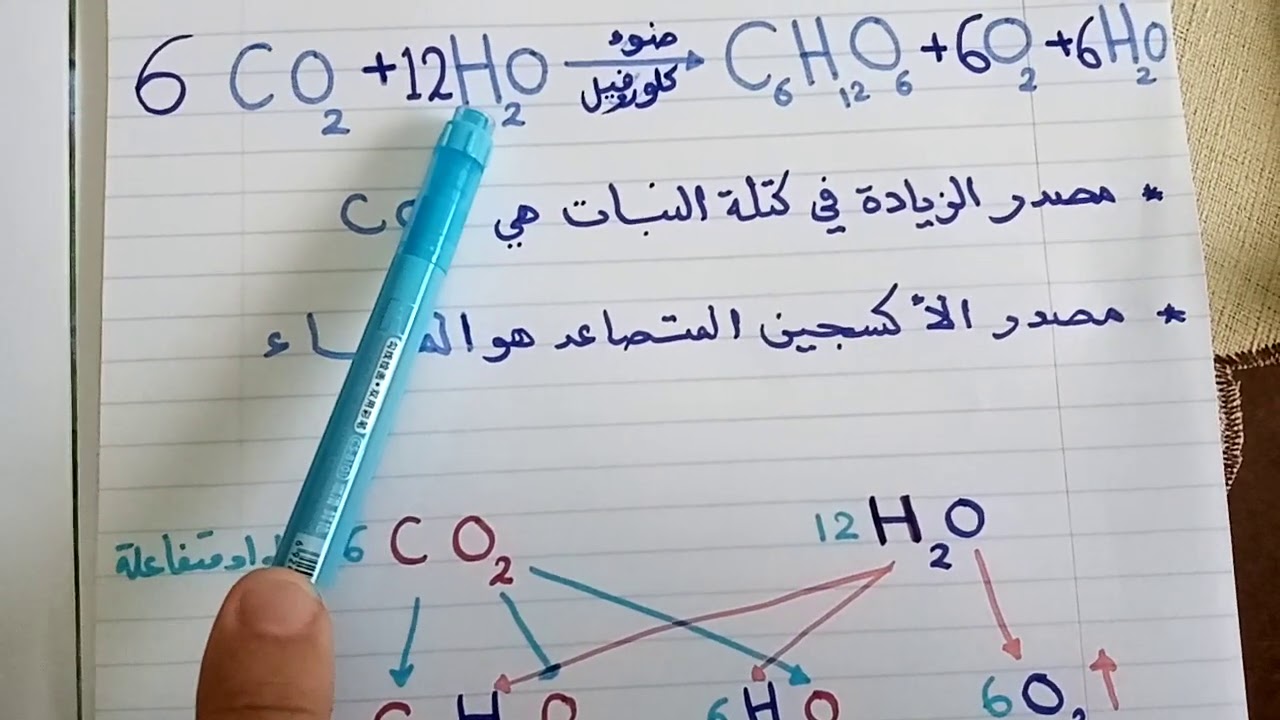 6 CO₂ + 12H₂O ضوء كلوروفيل → C₆H₁₂O₆ + 6O₂ + 6H₂O
* مصدر الزيادة في كتلة النبات هي
* مصدر الأكسجين المتصاعد هو الماء
متفاعلة 6 CO₂ 12 H₂O
C H O 6 H O 6 O₂ ↑